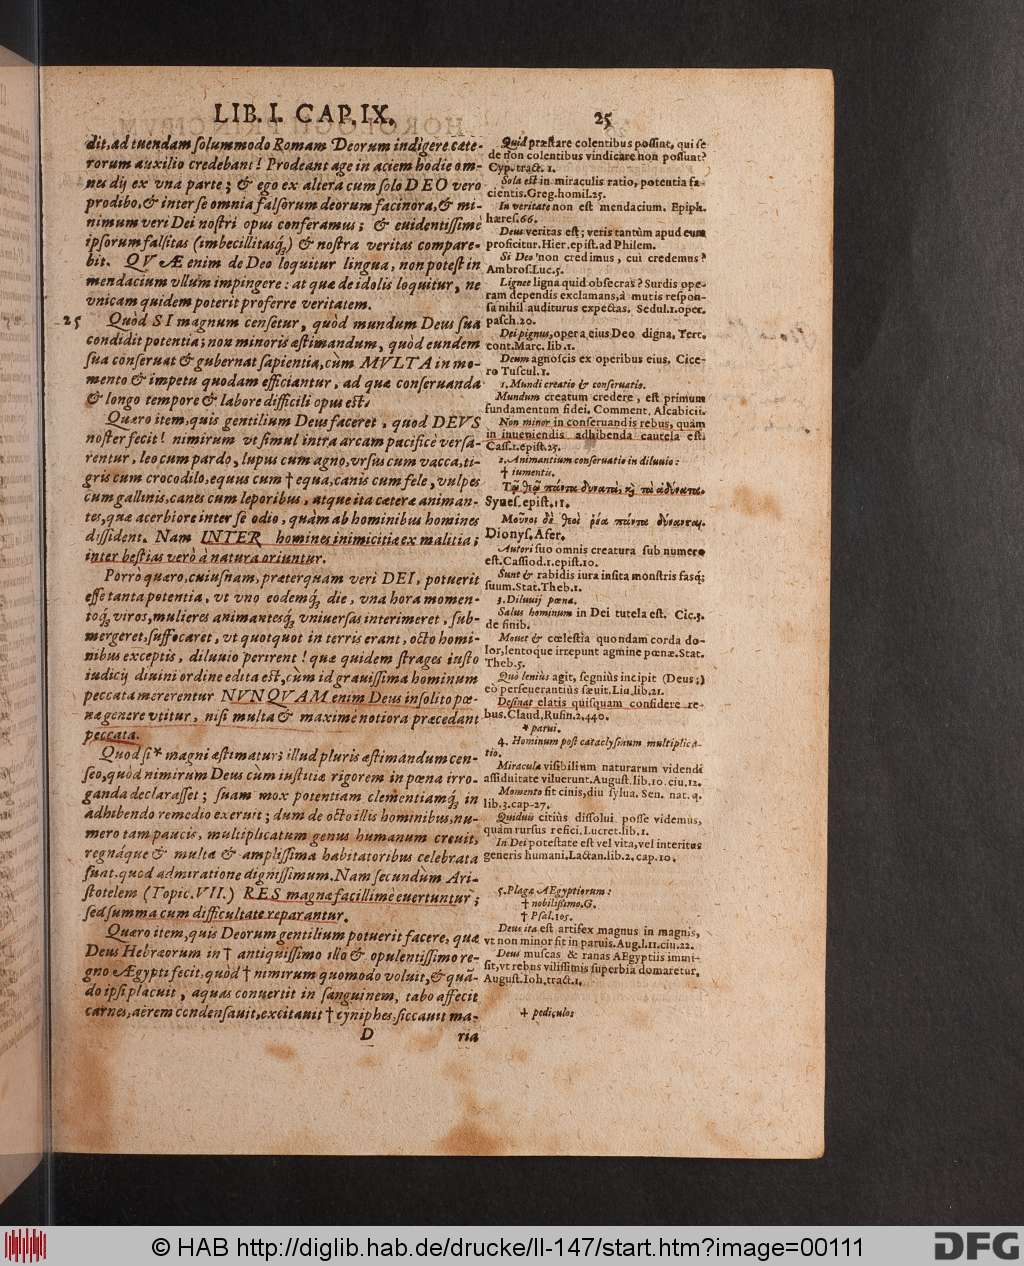 LIB. I. CAP. IX. 25
dit, ad tuendam ſolummodo Romam Deorum indigere cæte-
rorum auxilio credebant! Prodeant age in aciem hodie om-
nes dij ex vna parte; & ego ex altera cum ſolo DEO vero
prodibo, & inter ſe omnia falſorum deorum facinora, & mi-
nimum veri Dei noſtri opus conferamus; & euidentiſſimè
ipſorum falſitas (imbecillitasq́;) & noſtra veritas compare-
bit. QVÆ enim de Deo loquitur lingua, non poteſt in
mendacium vllum impingere: at quæ de idolis loquitur, ne
vnicam quidem poterit proferre veritatem.
25 Quòd SI magnum cenſetur, quòd mundum Deus ſua
condidit potentia; non minoris æſtimandum, quòd eundem
ſua conſeruat & gubernat ſapientia, cùm MVLTA in mo-
mento & impetu quodam efficiantur, ad quæ conſeruanda
& longo tempore & labore difficili opus eſt.
Quæro item, quis gentilium Deus faceret, quod DEVS
noſter fecit! nimirum vt ſimul intra arcam pacificè verſa-
rentur, leo cum pardo, lupus cum agno, vrſus cum vacca, ti-
gris cum crocodilo, equus cum † equa, canis cum fele, vulpes
cum gallinis, canes cum leporibus, atque ita cæteræ animan-
tes, quæ acerbiore inter ſe odio, quàm ab hominibus homines
diſſident. Nam INTER homines inimicitiæ ex malitia;
inter beſtias verò à natura oriuntur.
Porrò quæro, cuiuſnam, præterquam veri DEI, potuerit
eſſe tanta potentia, vt vno eodemq́; die, vna hora momen-
toq́; viros, mulieres animantesq́; vniuerſas interimeret, ſub-
mergeret, ſuffocaret, vt quotquot in terris erant, octo homi-
nibus exceptis, diluuio perirent! quæ quidem ſtrages iuſto
iudicij diuini ordine edita eſt, cùm id grauiſſima hominum
peccata mererentur NVNQVAM enim Deus inſolito pœ-
næ genere vtitur, niſi multa & maximè notiora præcedant
peccata.
Quod ſi * magni æſtimatur; illud pluris æſtimandum cen-
ſeo, quòd nimirum Deus cùm iuſtitiæ rigorem in pœna irro-
ganda declaraſſet; ſuam mox potentiam clementiamq́; in
adhibendo remedio exeruit; dum de octo illis hominibus, nu-
mero tam paucis, multiplicatum genus humanum creuit,
regnáque & multa & ampliſſima habitatoribus celebrata
fuat. quod admiratione digniſſimum. Nam ſecundùm Ari-
ſtotelem (Topic. VII.) RES magnæ facillimè euertuntur;
ſed ſumma cum difficultate reparantur.
Quæro item, quis Deorum gentilium potuerit facere, quæ
Deus Hebræorum in † antiquiſſimo illo & opulentiſſimo re-
gno Ægypti fecit. quòd † nimirum quomodo voluit, & quā-
do ipſi placuit, aquas conuertit in ſanguinem, tabo affecit
carnes, aerem condenſauit, excitauit † cyniphes, ſiccauit ma-
D ria
Quid præſtare colentibus poſſint, qui ſe
de non colentibus vindicare non poſſunt?
Cyp. tract. 1.
Sola eſt in miraculis ratio, potentia fa-
cientis. Greg. homil. 25.
In veritate non eſt mendacium. Epiph.
hæreſ. 66.
Deus veritas eſt; veris tantùm apud eum
proficitur. Hier. epiſt. ad Philem.
Si Deo non credimus, cui credemus?
Ambroſ. Luc. 5.
Ligneę ligna quid obſecras? Surdis ope-
ram dependis exclamans, à mutis reſpon-
ſa nihil auditurus expectas. Sedul. 1. oper.
paſch. 20.
Dei pignus, opera eius Deo digna. Tert.
cont. Marc. lib. 1.
Deum agnoſcis ex operibus eius. Cice-
ro Tuſcul. 1.
1. Mundi creatio & conſeruatio.
Mundum creatum credere, eſt primum
fundamentum fidei. Comment. Alcabicii.
Non minor in conſeruandis rebus, quàm
in inueniendis adhibenda cautela eſt.
Caſſ. 1. epiſt. 25.
2. Animantium conſeruatio in diluuio:
† iumentis.
Τῷ θεῷ πάντα δυνατὰ, κỳ τὰ ἀδύνατα.
Syneſ. epiſt. 11.
Μοῦνοι δὲ θεοὶ ῥέα πάντα δύνανται.
Dionyſ. Afer.
Autori ſuo omnis creatura ſub numero
eſt. Caſſiod. 1. epiſt. 10.
Sunt & rabidis iura inſita monſtris faſq́;
ſuum. Stat. Theb. 1.
3. Diluuij pœna.
Salus hominum in Dei tutela eſt. Cic. 3.
de finib.
Mouet & cœleſtia quondam corda do-
lor, lentoque irrepunt agmine pœnæ. Stat.
Theb. 5.
Quò leniùs agit, ſegniùs incipit (Deus;)
eò perſeuerantiùs ſæuit. Liu. lib. 21.
Deſinat elatis quiſquam confidere re-
bus. Claud. Rufin. 2, 440.
* parui.
4. Hominum poſt cataclyſmum multiplica-
tio.
Miracula viſibilium naturarum videndi
aſſiduitate viluerunt. Auguſt. lib. 10. ciu. 12.
Momento fit cinis, diu ſylua. Sen. nat. q.
lib. 3. cap. 27.
Quiduis citiùs diſſolui poſſe videmus,
quàm rurſus refici. Lucret. lib. 1.
In Dei poteſtate eſt vel vita, vel interitus
generis humani. Lactan. lib. 2. cap. 10.
5. Plagæ Ægyptiorum:
† nobiliſſimo. G.
† Pſal. 105.
Deus ita eſt artifex magnus in magnis,
vt non minor ſit in paruis. Aug. l. 11. ciu. 22.
Deus muſcas & ranas AEgyptiis immi-
ſit, vt rebus viliſſimis ſuperbia domaretur.
Auguſt. Ioh. tract. 1.
† pediculos
© HAB http://diglib.hab.de/drucke/li-147/start.htm?image=00111
DFG